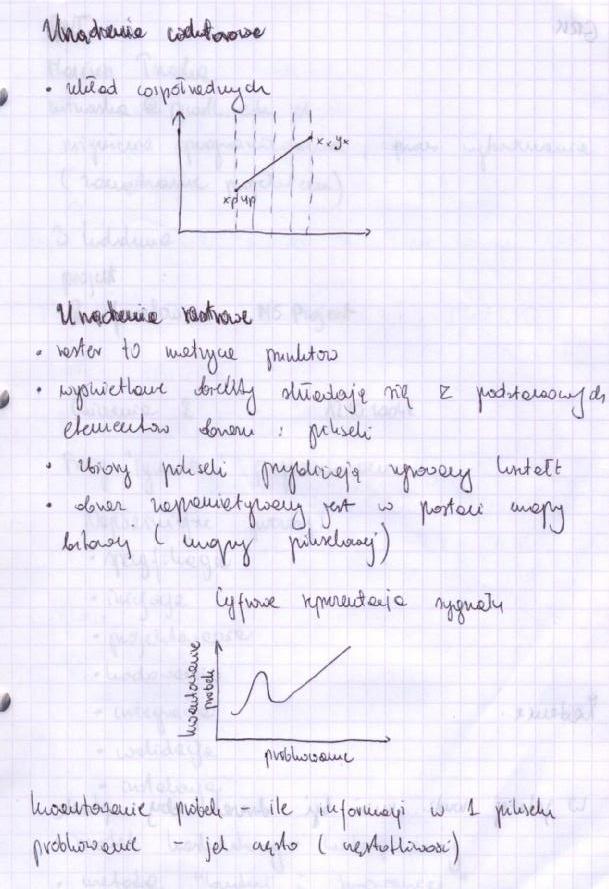 Urządzenia wektorowe
• układ współrzędnych
xk yk
xp yp
Urządzenia rastrowe
• raster to matryca punktów
• wyświetlane obiekty składają się z podstawowych
elementów obrazu: pikseli
• zbiory pikseli przybliżają rysowany kształt
• obraz zapamiętywany jest w postaci mapy
bitowej (mapy pikselowej)
Cyfrowa reprezentacja sygnału
kwantowanie
próbek
próbkowanie
kwantowanie próbek - ile informacji w 1 pikselu
próbkowanie - jak często (częstotliwość)